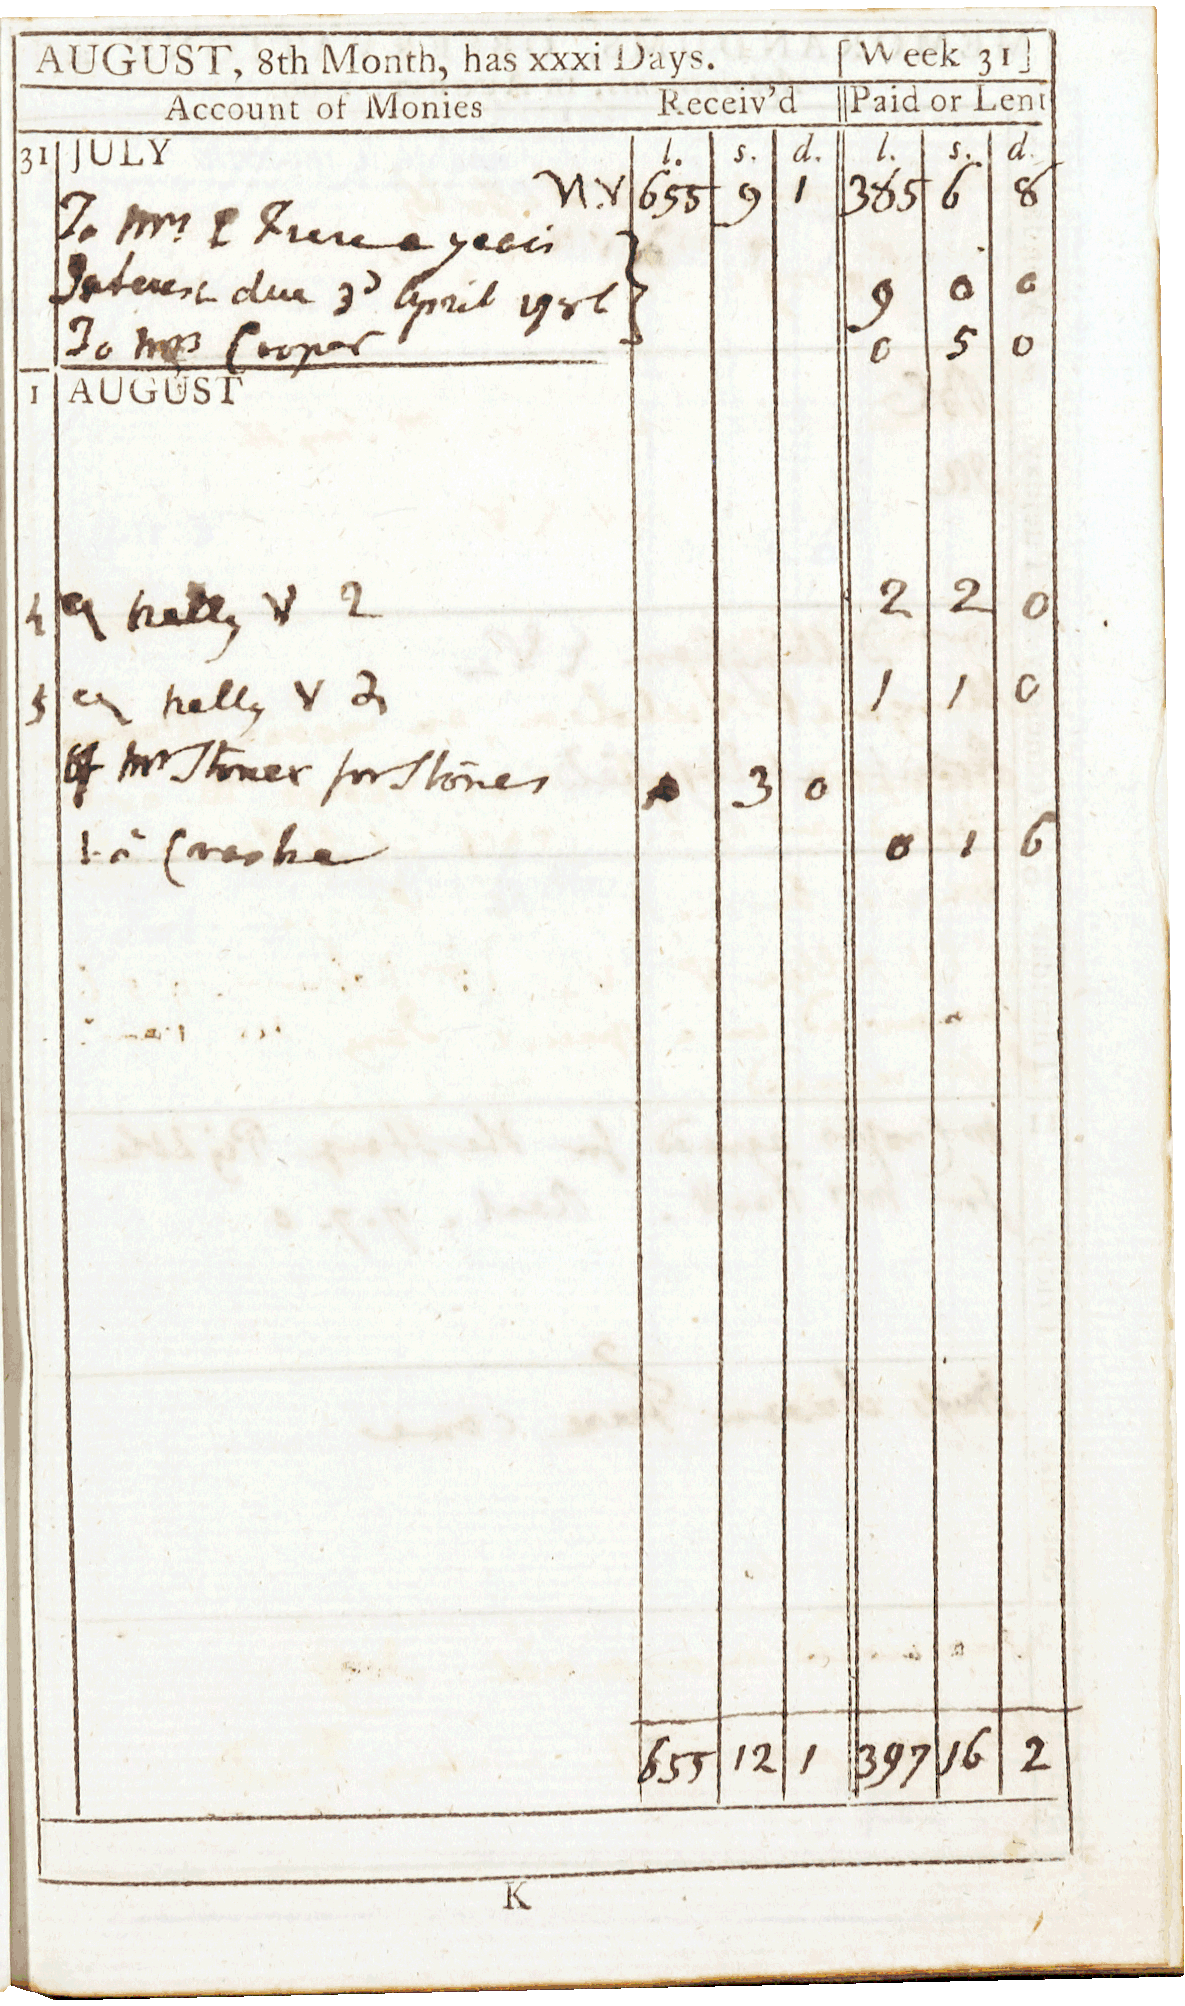 AUGUST, 8th Month, has xxxi Days. [Week 31]
Account of Monies Receiv'd Paid or Lent
31 JULY l. s. d. l. s. d.
655 9 1 385 6 8
To Mrs E Frere a years
Interest due 3d April 9 0 0
To Mrs Cooper 0 5 0
1 AUGUST
4 kelly V 2 2 2 0
5 kelly V 1 1 0
Of Mr Stoner for Stones 0 3 0
To Crashe 0 1 6
655 12 1 397 16 2
K